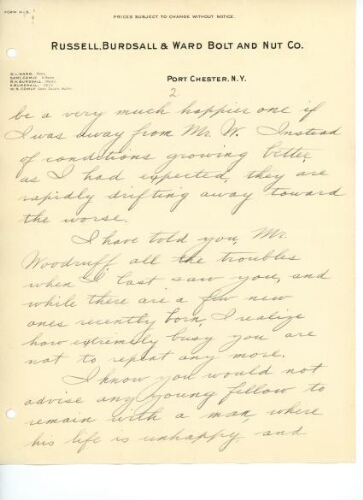 PRICES SUBJECT TO CHANGE WITHOUT NOTICE.
RUSSELL, BURDSALL & WARD BOLT AND NUT CO.
PORT CHESTER, N.Y.
2
be a very much happier one if
I was away from Mr. W. Instead
of conditions growing better
as I had expected, they are
rapidly drifting away toward
the worse.
I have told you, Mr.
Woodruff, all the troubles
when I last saw you, and
while there are a few new
ones recently born, I realize
how extremely busy you are
not to repeat any more.
I know you would not
advise any young fellow to
remain with a man, where
his life is unhappy, and